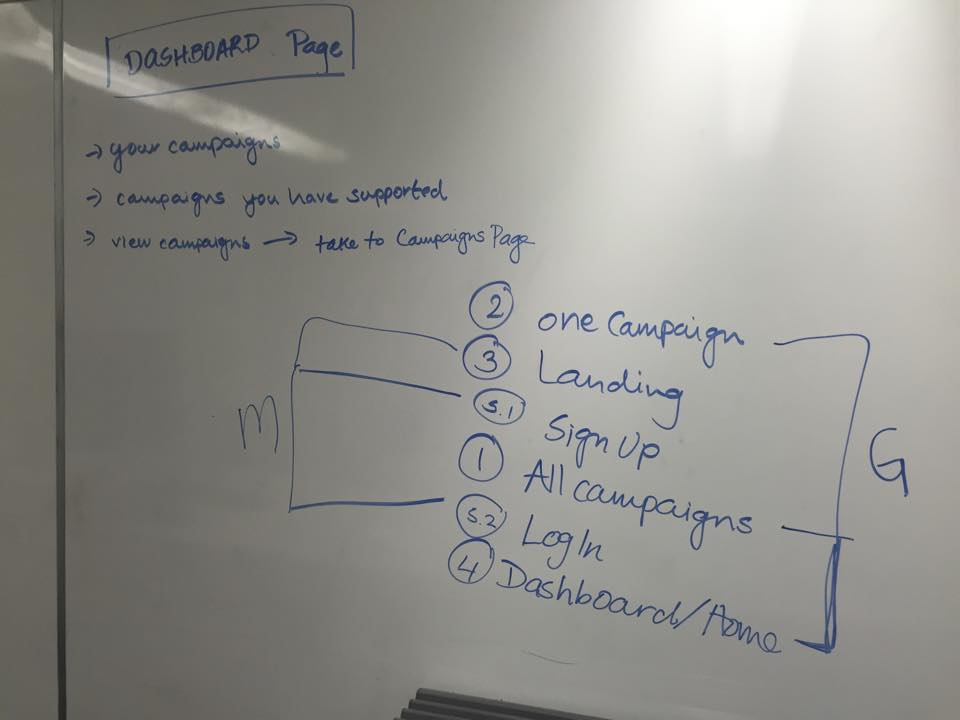 DASHBOARD Page
→ your campaigns
→ campaigns you have supported
→ view campaigns → take to Campaigns Page
2 one Campaign
3 Landing
5.1 Sign Up
1 All campaigns
5.2 Log In
4 Dashboard/Home
M
G